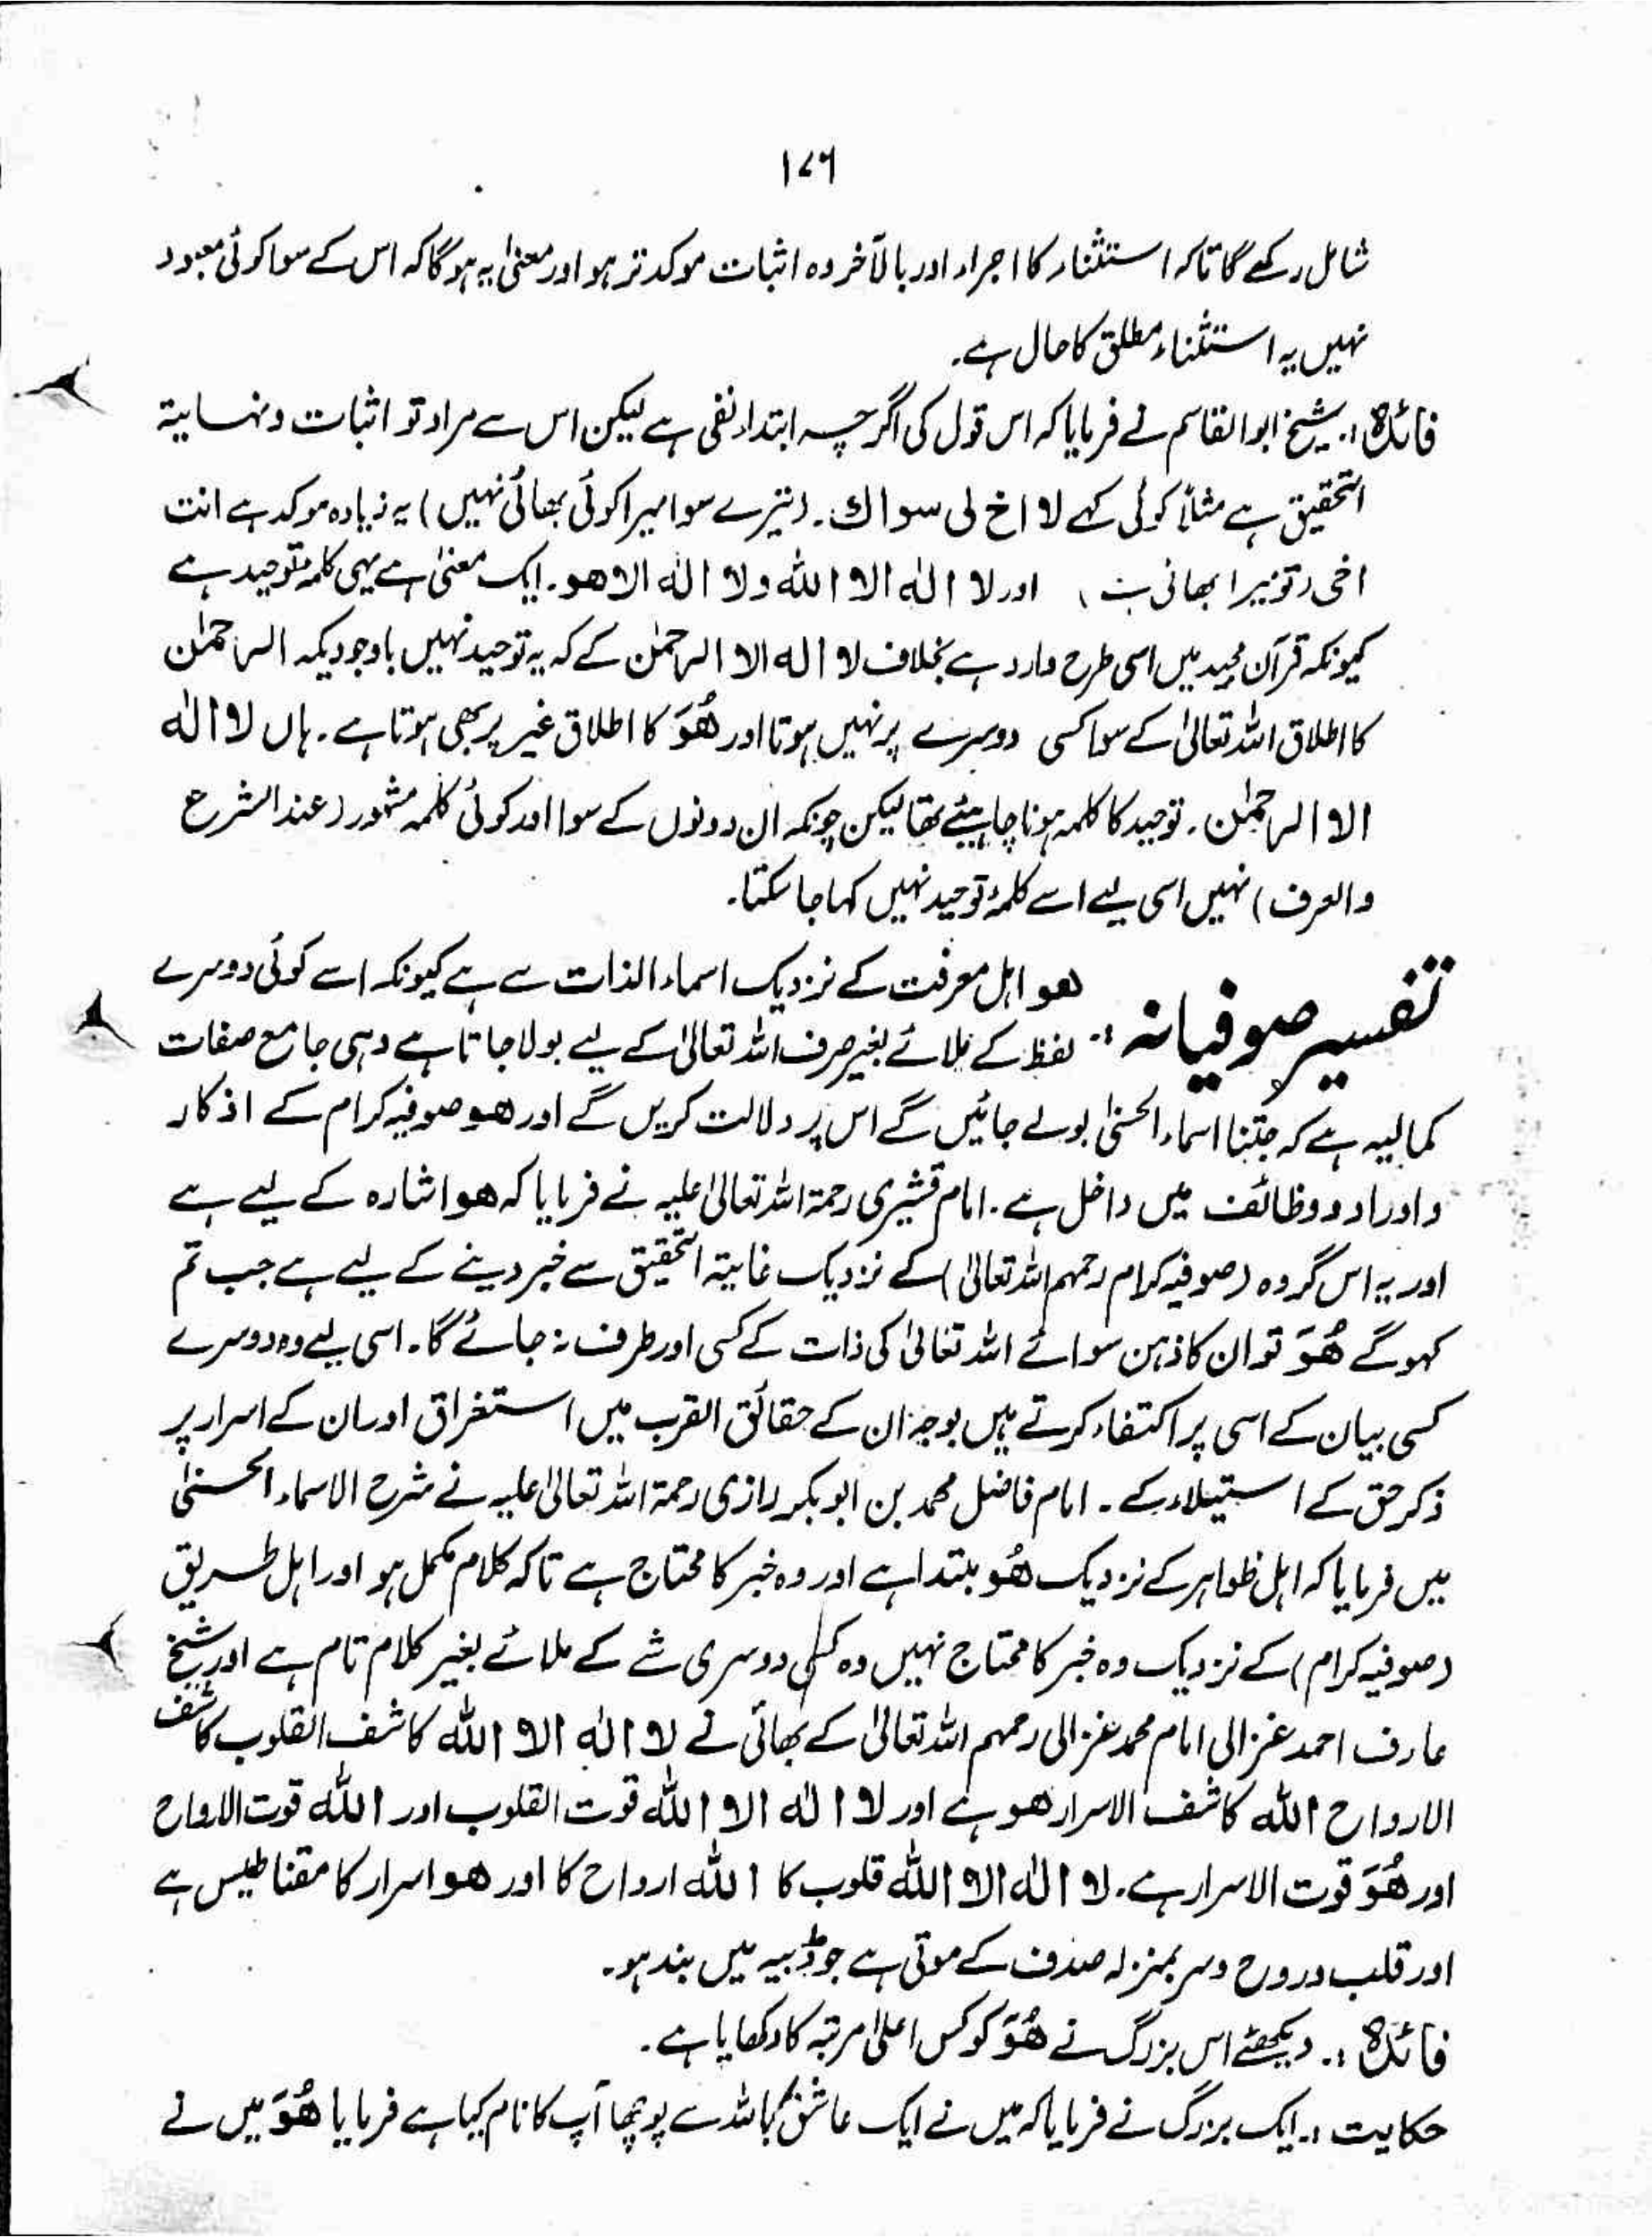 ۱۷۶
شامل رکھے گا تاکہ استثناء کا اجراء اور بالآخر وہ اثبات موکد تر ہو اور معنیٰ یہ ہوگا کہ اس کے سوا کوئی معبود
نہیں یہ استثناء مطلق کا حال ہے۔
فائدہ :۔ شیخ ابوالقاسم نے فرمایا کہ اس قول کی اگرچہ ابتداء نفی ہے لیکن اس سے مراد تو اثبات و نہایتہ
التحقیق ہے مثلاً کوئی کہے لا اخ لی سواك۔ (تیرے سوا میرا کوئی بھائی نہیں) یہ زیادہ موکد ہے انت
اخی (تو میرا بھائی ہے) اور لا الٰہ الا اللہ ولا الٰہ الا ھو۔ ایک معنیٰ ہے یہی کلمہ توحید ہے
کیونکہ قرآن مجید میں اسی طرح وارد ہے بخلاف لا الہ الا الرحمٰن کے کہ یہ توحید نہیں باوجودیکہ الرحمٰن
کا اطلاق اللہ تعالیٰ کے سوا کسی دوسرے پر نہیں ہوتا اور ھُوَ کا اطلاق غیر پر بھی ہوتا ہے۔ ہاں لا الٰہ
الا الرحمٰن۔ توحید کا کلمہ ہونا چاہیئے تھا لیکن چونکہ ان دونوں کے سوا اور کوئی کلمہ مشہور (عند الشرع
والعرف) نہیں اسی لیے اسے کلمۂ توحید نہیں کہا جا سکتا۔
تفسیر صوفیانہ :۔ ھو اہل معرفت کے نزدیک اسماء الذات سے ہے کیونکہ اسے کوئی دوسرے
لفظ کے ملائے بغیر صرف اللہ تعالیٰ کے لیے بولا جاتا ہے وہی جامع صفات
کمالیہ ہے کہ جتنا اسماء الحسنیٰ بولے جائیں گے اس پر دلالت کریں گے اور ھو صوفیہ کرام کے اذکار
و اوراد و وظائف میں داخل ہے۔ امام قشیری رحمۃ اللہ تعالیٰ علیہ نے فرمایا کہ ھو اشارہ کے لیے ہے
اور یہ اس گروہ (صوفیہ کرام رحمہم اللہ تعالیٰ) کے نزدیک غایۃ التحقیق سے خبر دینے کے لیے ہے جب تم
کہو گے ھُوَ تو ان کا ذہن سوائے اللہ تعالیٰ کی ذات کے کسی اور طرف نہ جائے گا۔ اسی لیے وہ دوسرے
کسی بیان کے اسی پر اکتفاء کرتے ہیں بوجہ ان کے حقائق القرب میں استغراق اور ان کے اسرار پر
ذکر حق کے استیلاء کے۔ امام فاضل محمد بن ابوبکر رازی رحمۃ اللہ تعالیٰ علیہ نے شرح الاسماء الحسنیٰ
میں فرمایا کہ اہل ظواہر کے نزدیک ھُو مبتدا ہے اور وہ خبر کا محتاج ہے تاکہ کلام مکمل ہو اور اہل طریق
(صوفیہ کرام) کے نزدیک وہ خبر کا محتاج نہیں وہ کسی دوسری شے کے ملائے بغیر کلام تام ہے اور شیخ
عارف احمد غزالی امام محمد غزالی رحمہم اللہ تعالیٰ کے بھائی نے لا الٰہ الا اللہ کاشف القلوب کاشف
الارواح اللہ کاشف الاسرار ھو ہے اور لا الٰہ الا اللہ قوت القلوب اور اللہ قوت الارواح
اور ھُوَ قوت الاسرار ہے۔ لا الٰہ الا اللہ قلوب کا اللہ ارواح کا اور ھو اسرار کا مقناطیس ہے
اور قلب و روح و سر بمنزلہ صدف کے موتی ہے جو ڈبیہ میں بند ہو۔
فائدہ :۔ دیکھئے اس بزرگ نے ھُوَ کو کس اعلیٰ مرتبہ کا دکھایا ہے۔
حکایت :۔ ایک بزرگ نے فرمایا کہ میں نے ایک عاشق باللہ سے پوچھا آپ کا نام کیا ہے فرمایا ھُوَ میں نے